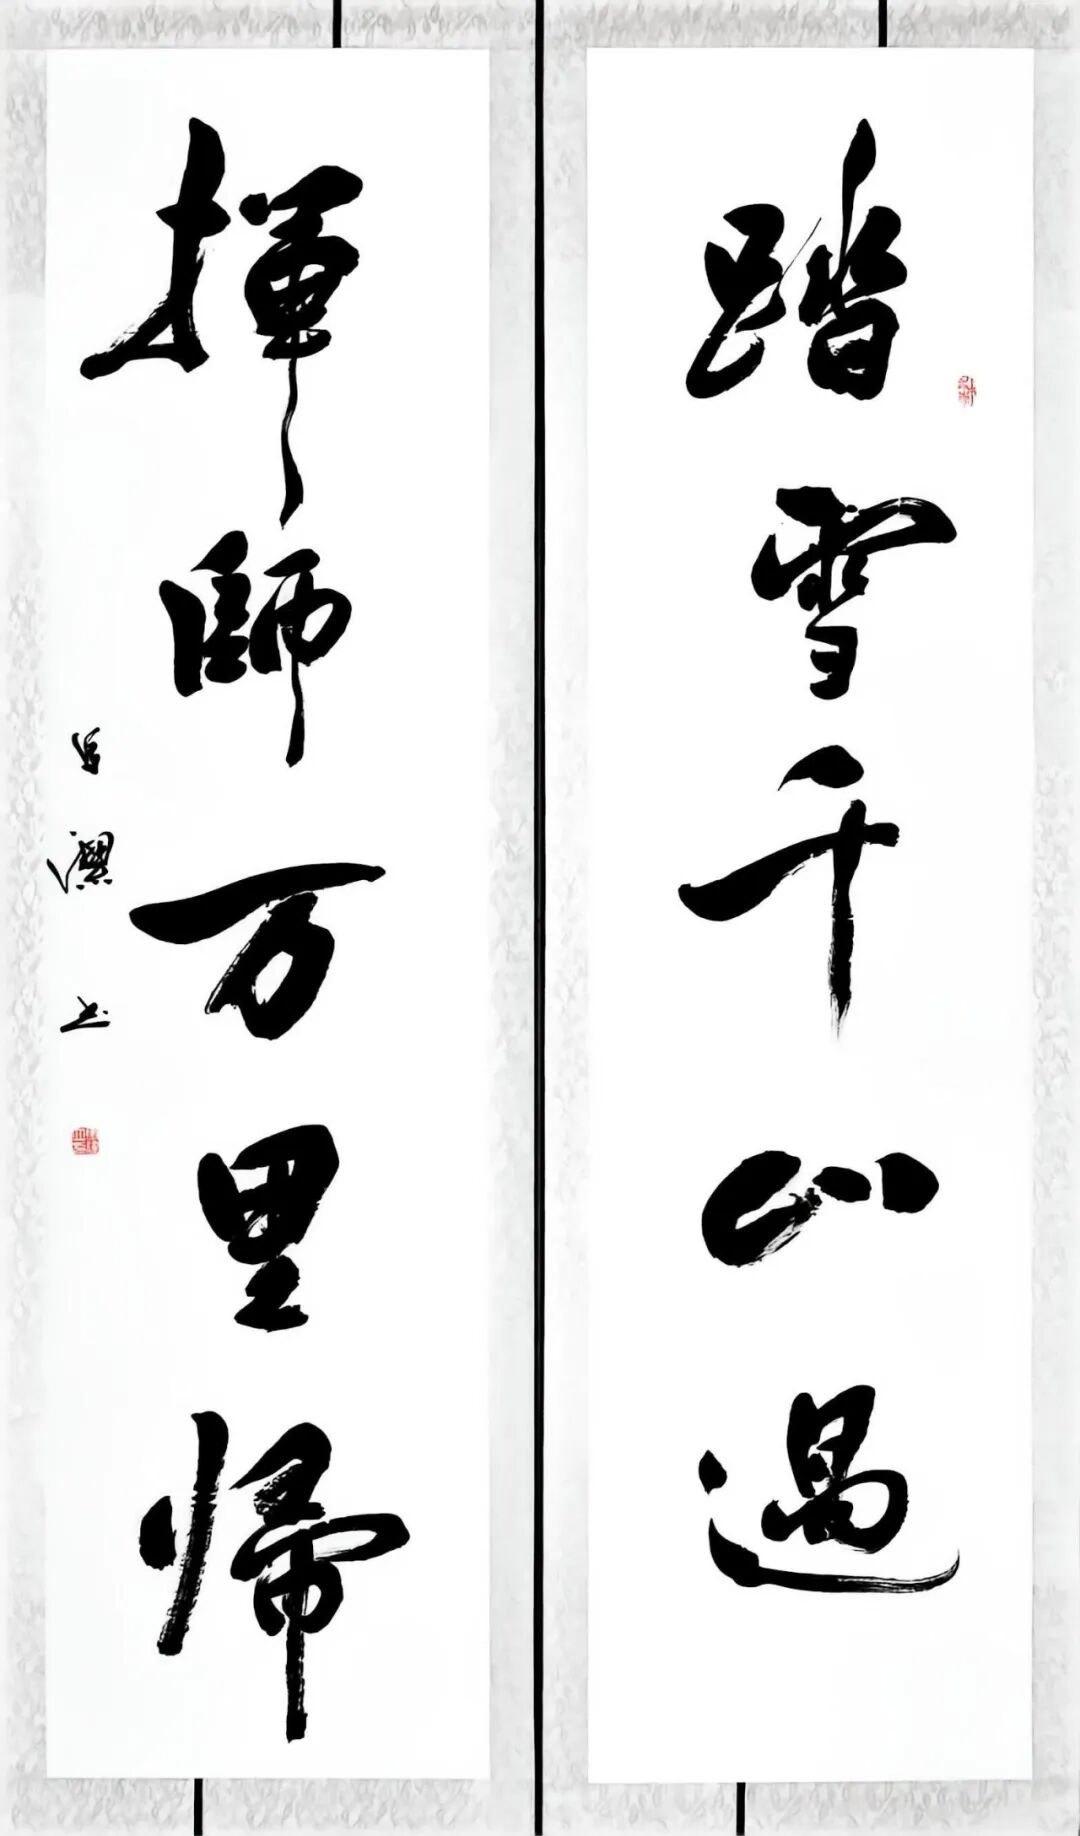 踏雪千山過
揮師万里歸
书